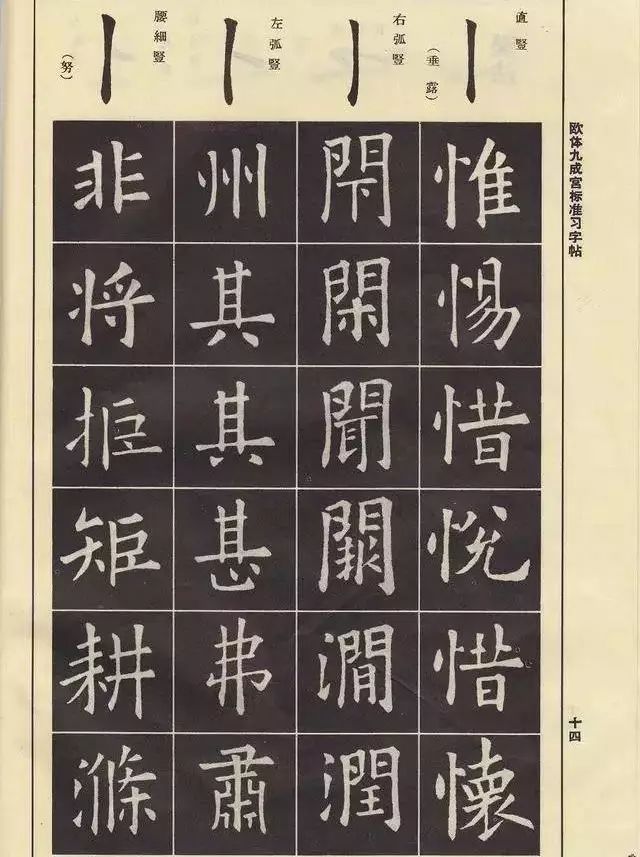 欧体九成宫标准习字帖
十四
直竪
（垂露）
惟惕惜悦惜懐
右弧竪
閇閑聞闕澗潤
左弧竪
州其其甚弗肅
腰細竪
（努）
非将拒矩耕滌